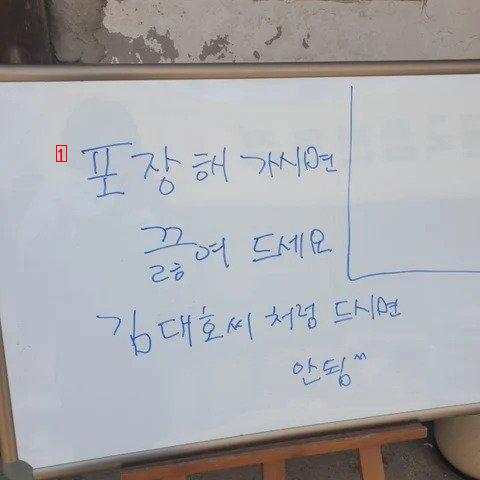 1
포장해 가시면
끓여 드세요
김대호씨 처럼 드시면
안됨^^